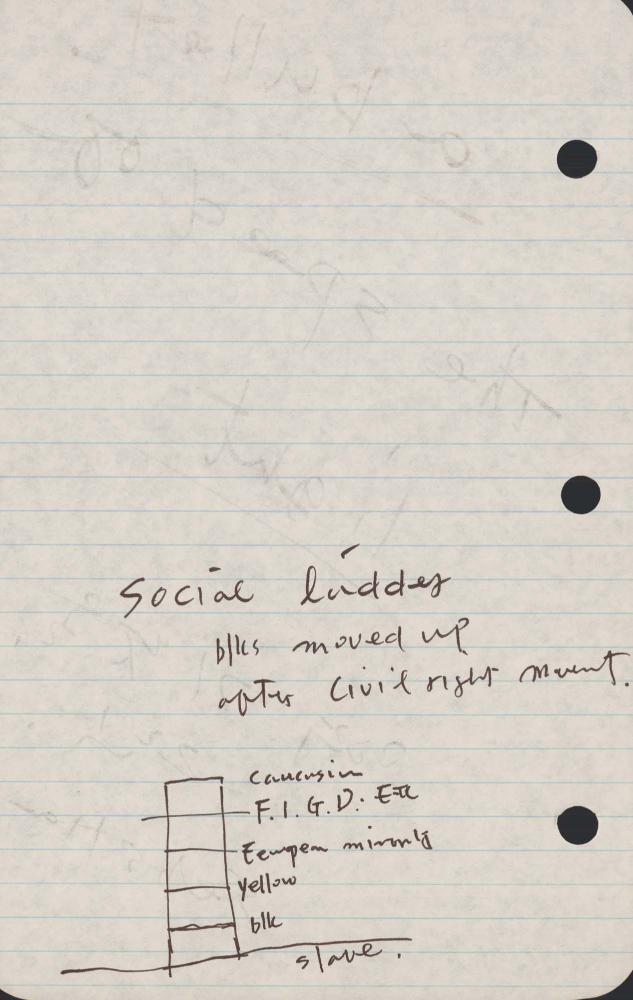 Social ladder
blks moved up
after Civil right mvemt.
caucasian
F. I. G. D. Etc
European minority
yellow
blk
slave.